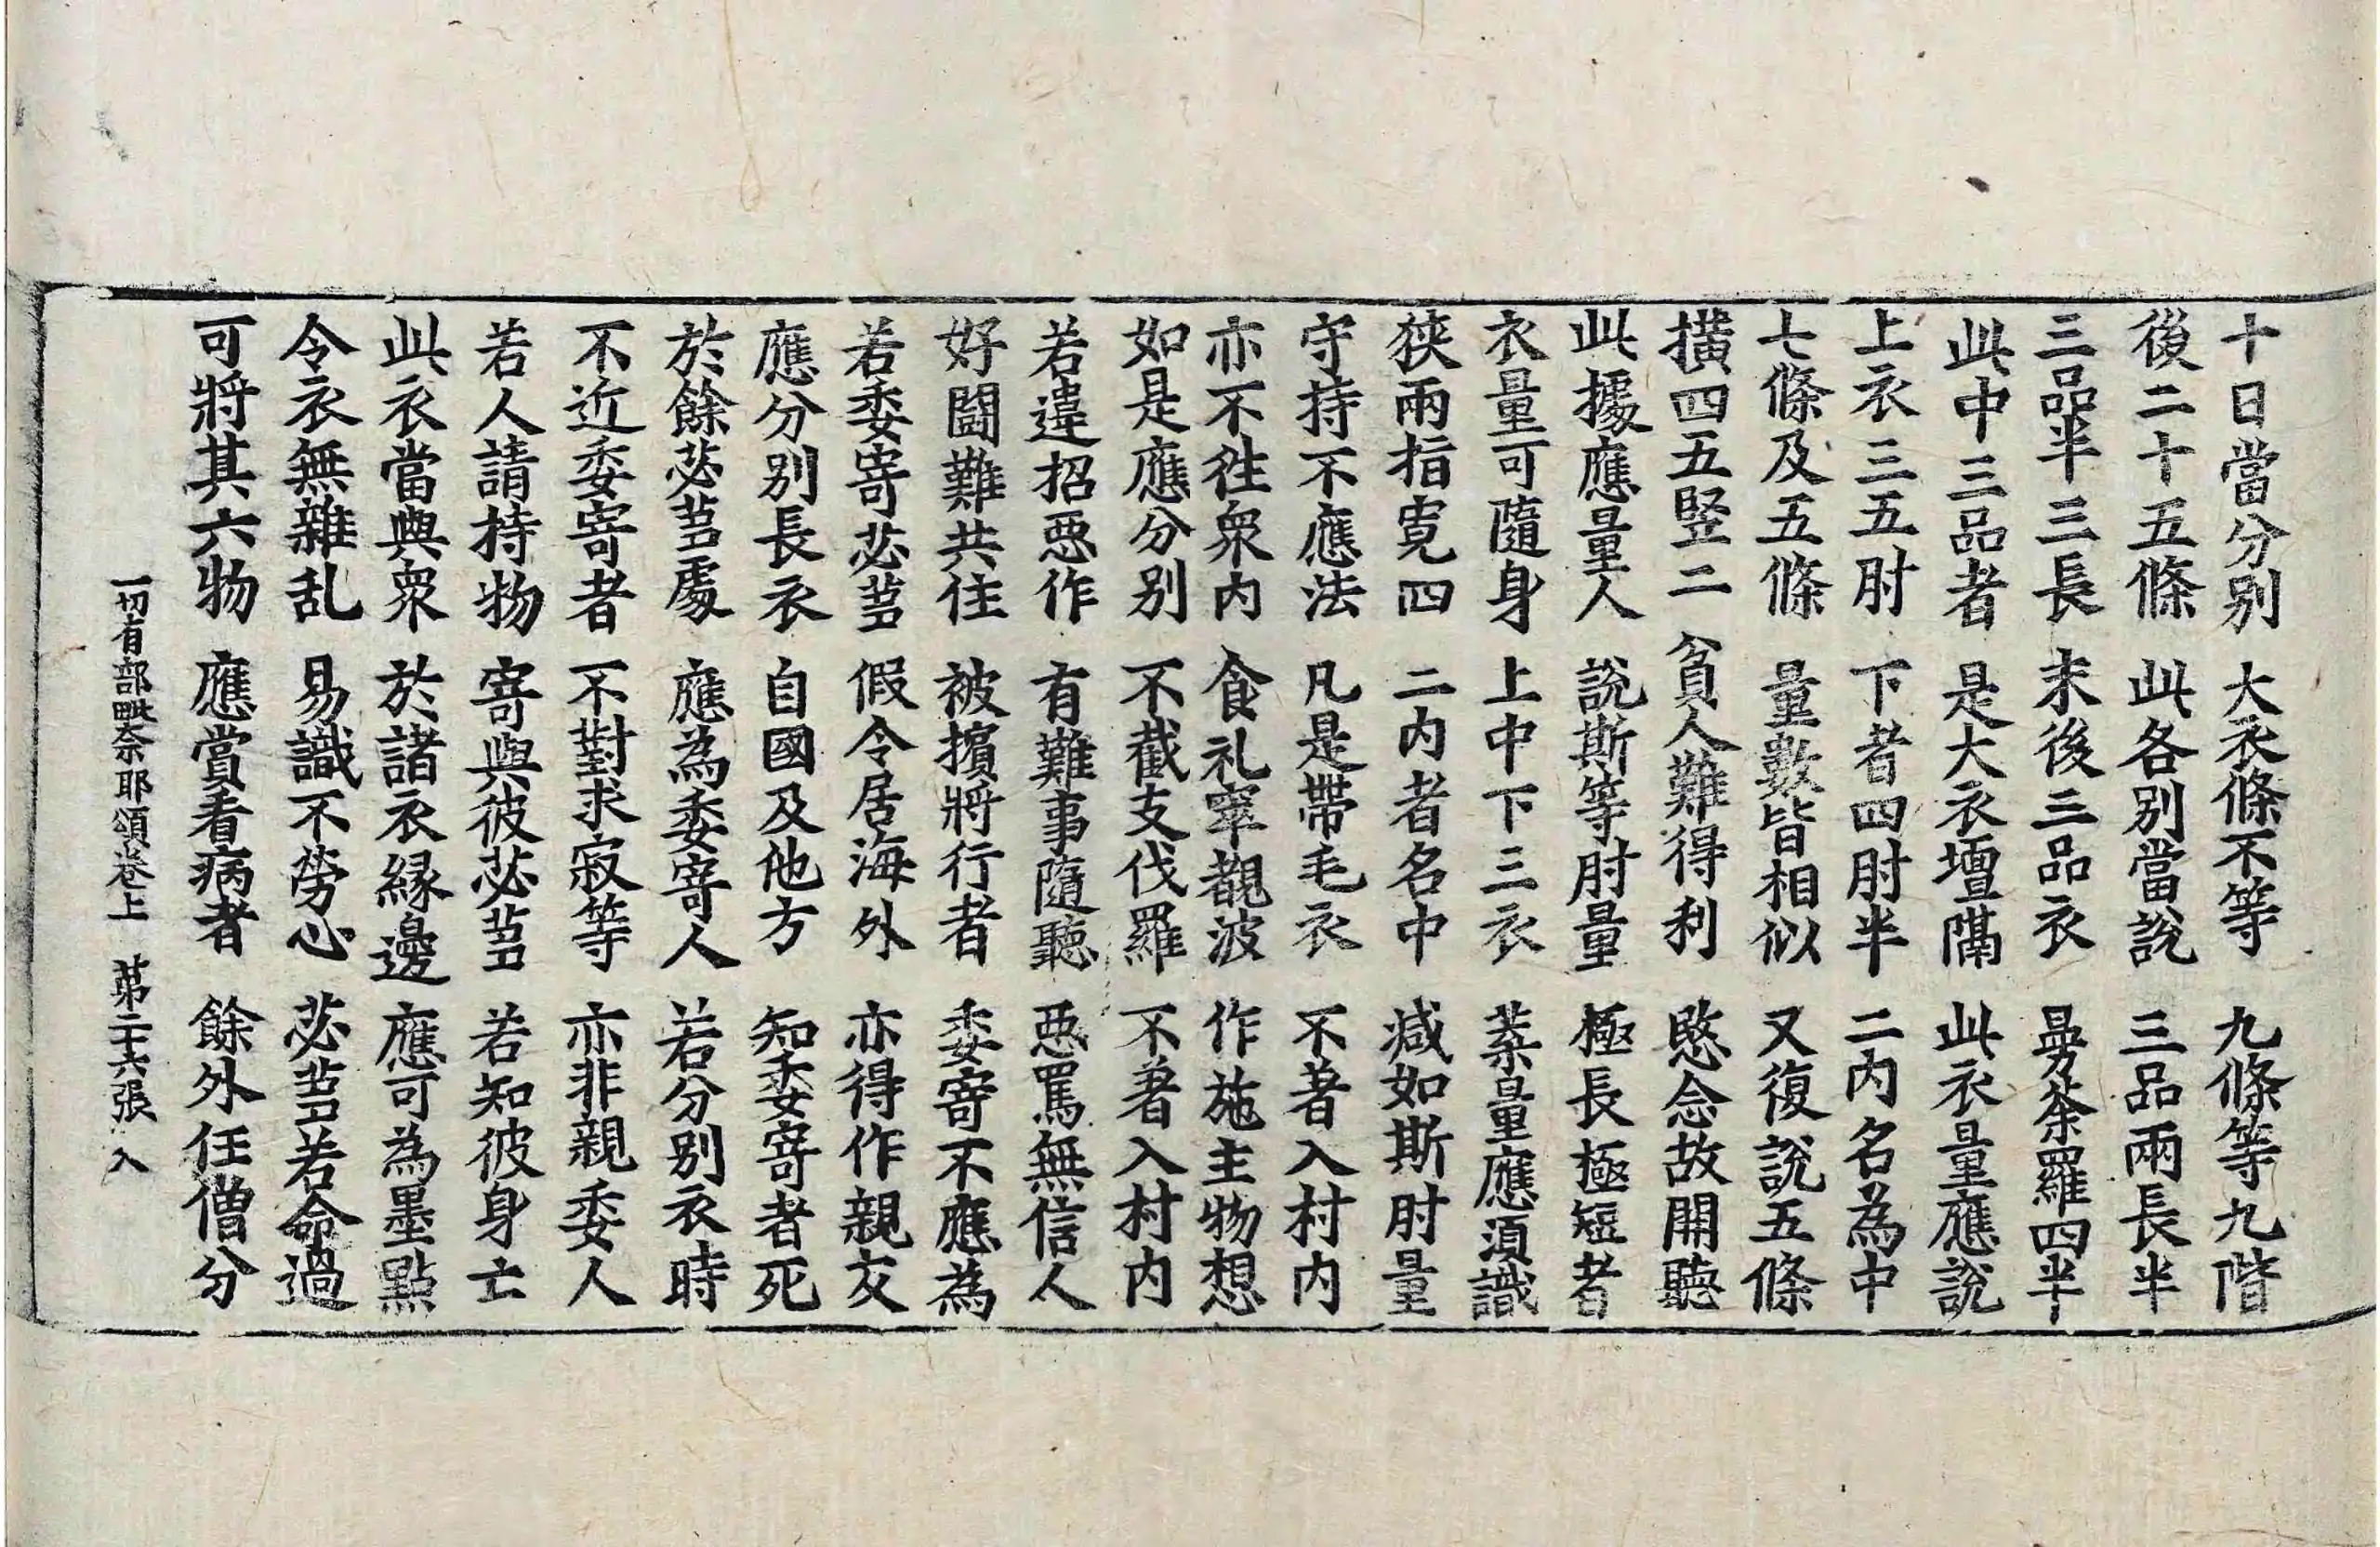 十日當分别　大衣條不等　九條等九階
後二十五條　此各别當說　三品兩長半
三品半三長　末後三品衣　曼荼羅四半
此中三品者　是大衣壇隔　此衣量應說
上衣三五肘　下者四肘半　二內名為中
七條及五條　量數皆相似　又復說五條
撗四五竪二　貧人難得利　愍念故開聽
此據應量人　說斯等肘量　極長極短者
衣量可隨身　上中下三衣　葉量應湏識
狹兩指寬四　二內者名中　减如斯肘量
守持不應法　凡是帶毛衣　不著入村內
亦不往衆內　食礼窣覩波　作施主物想
如是應分别　不截支伐羅　不著入村內
若違招惡作　有難事隨聽　惡罵無信人
好鬪難共住　被擯將行者　委寄不應為
若委寄苾芻　假令居海外　亦得作親友
應分别長衣　自國及他方　知委寄者死
於餘苾芻處　應為委寄人　若分别衣時
不近委寄者　不對求寂等　亦非親委人
若人請持物　寄與彼苾芻　若知彼身亡
此衣當與衆　於諸衣緣邊　應可為墨點
令衣無雜乱　易識不勞心　苾芻若命過
可將其六物　應賞看病者　餘外任僧分
一切有部毗奈耶頌卷上　第二十六張　入